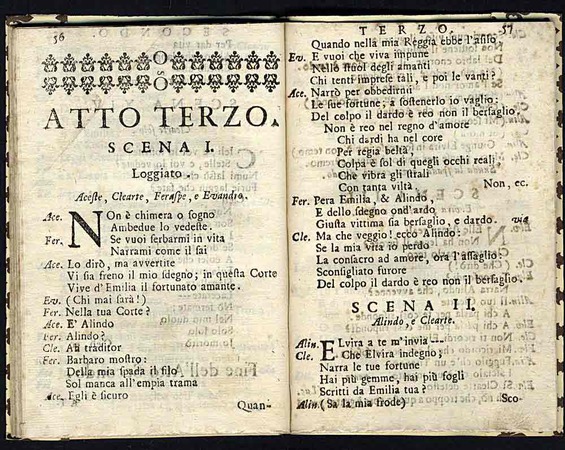 56
ATTO TERZO.
SCENA I.
Loggiato.
Aceste, Clearte, Feraspe, e Evandro.
Ace. NOn è chimera o sogno
Ambedue lo vedeste.
Fer. Se vuoi serbarmi in vita
Narrami come il sai
Ace. Lo dirò, ma avvertite
Vi sia freno il mio sdegno; in questa Corte
Vive d'Emilia il fortunato amante.
Ev. (Chi mai sarà!)
Fer. Nella tua Corte?
Ace. E' Alindo
Fer. Alindo?
Cle. Ah traditor
Fer. Barbaro mostro:
Della mia spada il filo
Sol manca all'empia trama
Ace. Egli è sicuro
Quan-
TERZO. 57
Quando nella mia Reggia ebbe l'asilo.
Ev. E vuoi che viva impune
Nello stuol degli amanti
Chi tentò imprese tali, e poi le vanti?
Ace. Narrò per obbedirmi
Le sue fortune; a sostenerlo io vaglio:
Del colpo il dardo è reo non il bersaglio.
Non è reo nel regno d'amore
Chi dardi ha nel core
Per regia beltà.
Colpa è sol di quegli occhi reali
Che vibra gli strali
Con tanta viltà. Non, ec.
Fer. Pera Emilia, & Alindo,
E dello sdegno ond'ardo
Giusta vittima sia bersaglio, e dardo. via
Cle. Ma che veggio! ecco Alindo:
Se la mia vita io perdo
La consacro ad amore, ora l'assaglio:
Sconsigliato furore
Del colpo il dardo è reo non il bersaglio.
SCENA II.
Alindo, e Clearte.
Alin. ELvira a te m'invia ---
Cle. Che Elvira indegno;
Narra le tue fortune
Hai più gemme, hai più fogli
Scritti da Emilia tua?
Alin. (Sa la mia frode)
Sco-